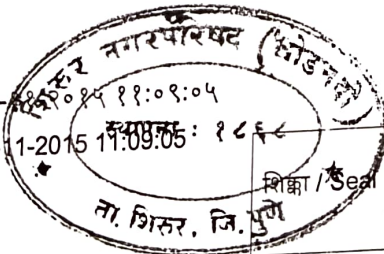 शिरुर नगरपरिषद (घोडनदी)
०१५ ११:०९:०५
11-2015 11:09:05
स्थापना : १८६८
शिक्का / Seal
ता. शिरुर, जि. पुणे